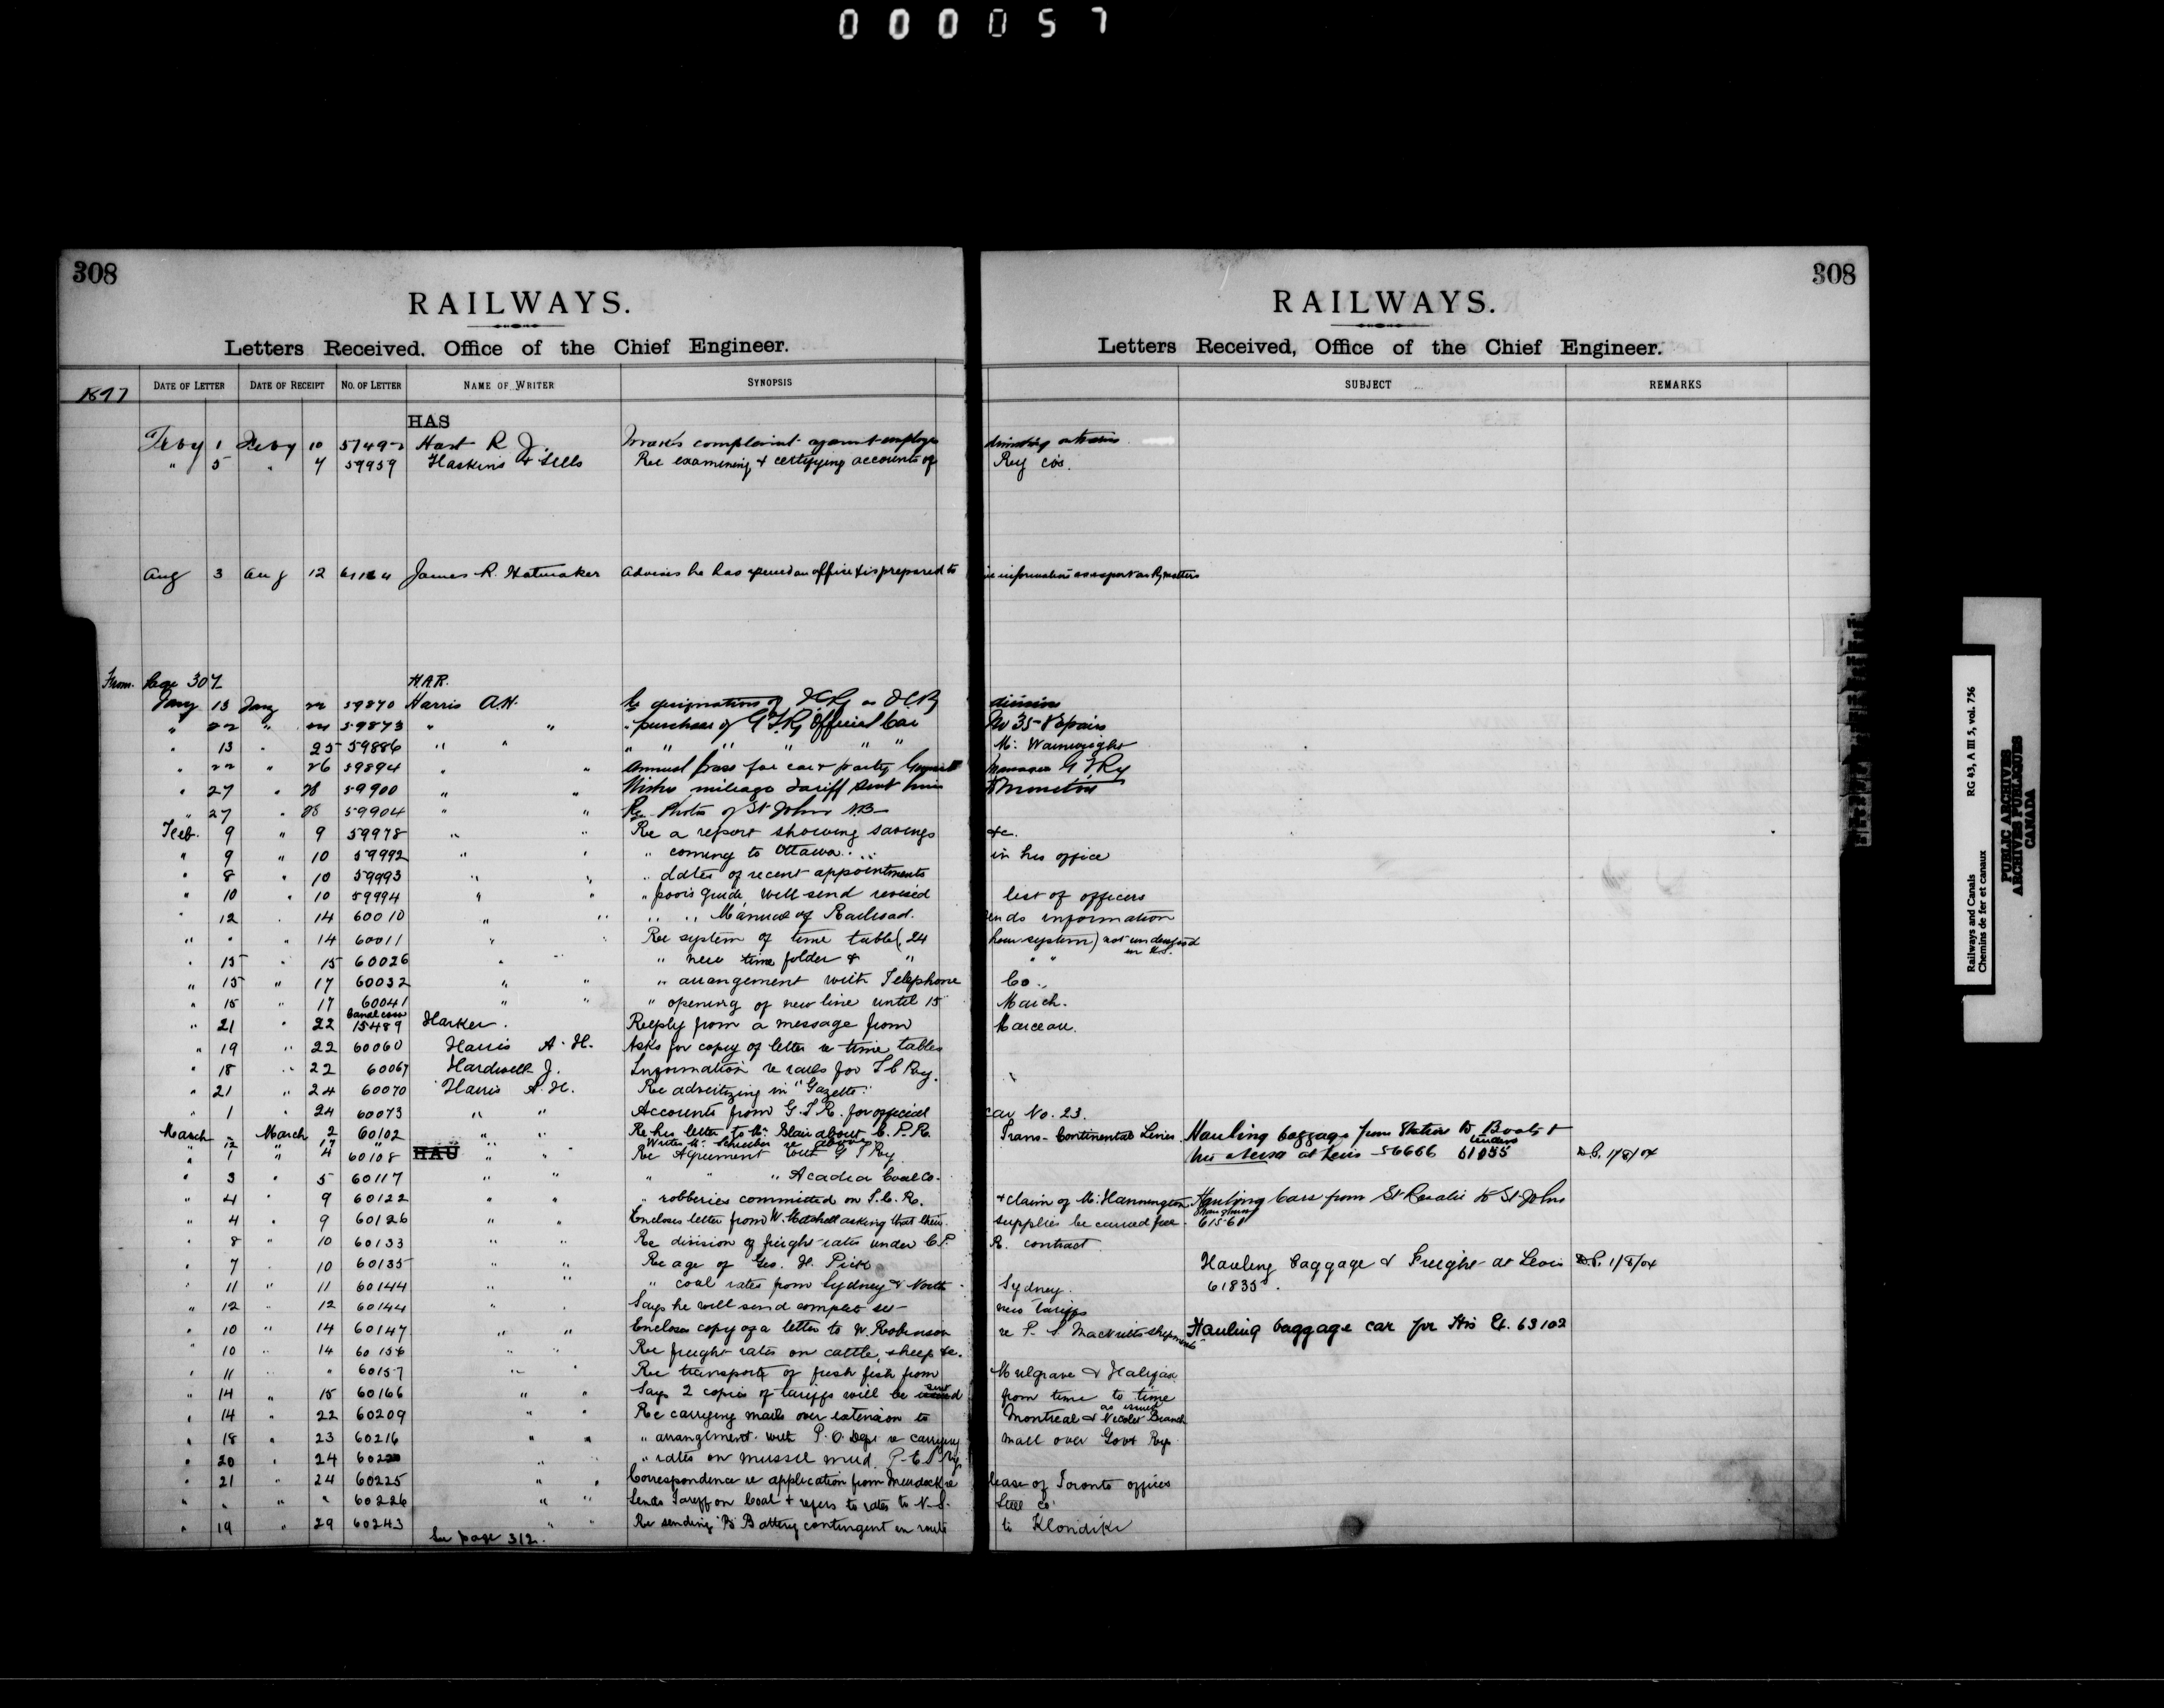 000057
308
RAILWAYS.
Letters Received. Office of the Chief Engineer.
308
RAILWAYS.
Letters Received, Office of the Chief Engineer.
1897 DATE OF LETTER DATE OF RECEIPT No. OF LETTER NAME OF WRITER SYNOPSIS SUBJECT REMARKS
HAS
Feby 1 Feby 10 Hart R J. complaint against employe
" 5 " 7 59959 Haskins & Sells Re examining & certifying accounts of Ry cos.
Aug 3 Aug 12 James R. Hatmaker Advises he has opened an office & is prepared to information on Ry matters
From Page 307 HAR.
Jany 13 Jany 22 59870 Harris A.H. Re designations of division
" 22 " 59873 " " " purchase of G T Ry Official Car No 35 - Repairs
" 13 " 25 59886 " " " " " " " " Mr. Wainwright
" 22 " 26 59894 " " Annual pass for car & party Manager G T Ry
" 27 " 28 59900 " " Wishes mileage tariff sent him Moncton
" 27 " 28 59904 " " Re Photos of St John N.B.
Feb. 9 " 9 59978 " " Re a report showing savings &c.
" 9 " 10 59992 " " " coming to Ottawa in his office
" 8 " 10 59993 " " " dates of recent appointments
" 10 " 10 59994 " " " poor's guide, will send revised list of officers
" 12 " 14 60010 " " " " Manual of Railroad. information
" " " 14 60011 " " Re system of time table (24 hour system) not understood in U.S.
" 15 " 15 60026 " " " new time folder & " " "
" 15 " 17 60032 " " " arrangement with Telephone Co.
" 15 " 17 60041 " " " opening of new line until 15 March.
" 21 " 22 Canal 15489 Harker. Reply from a message from Marceau.
" 19 " 22 60060 Harris A. H. Asks for copy of letter re time tables
" 18 " 22 60067 Hardwell J. Information re rails for I C Ry.
" 21 " 24 60070 Harris A. H. Re advertizing in "Gazette"
" 1 " 24 60073 " " Accounts from G.T.R. for official car No. 23.
March - March 2 60102 " " Re his letter to Mr. Blair about C. P. R. Trans-Continental Lines. Hauling baggage from Station to Boats &
" 12 " 17 Writes Mr. Schreiber re above
" 1 " 4 60108 HAU " " Re Agreement with G T Ry at Levis 56666 61055 D.P. 1/8/04
" 3 " 5 60117 " " " " " Acadia Coal Co.
" 4 " 9 60122 " " " robberies committed on I. C. R. & claim of Mr. Hannington Hauling Cars from St Rosalie to St Johns
" 4 " 9 60126 " " Encloses letter from W. Mitchell asking that their supplies be carried free. 61561
" 8 " 10 60133 " " Re division of freight rates under C.P. R. contract
" 7 " 10 60135 " " Re age of Geo. H. Pick Hauling baggage & Freight at Levis D.P. 1/8/04
" 11 " 11 60144 " " " coal rates from Sydney & North Sydney. 61835.
" 12 " 12 60144 " " Says he will send complete set new tariffs
" 10 " 14 60147 " " Encloses copy of a letter to W. Robinson re P. S. shipments Hauling baggage car for His Ex. 63102
" 10 " 14 60156 " " Re freight rates on cattle, sheep &c.
" 11 " " 60157 " " Re transport of fresh fish from Mulgrave & Halifax
" 14 " 15 60166 " " Says 2 copies of tariffs will be sent from time to time as issued
" 14 " 22 60209 " " Re carrying mails over extension to Montreal & Nicolet Branch
" 18 " 23 60216 " " " arrangement with P. O. Dept re carrying mail over Govt Rys
" 20 " 24 " " " rates on mussel mud P. E. I. Ry
" 21 " 24 60225 " " Correspondence re application from Murdock re lease of Toronto offices
" " " " 60226 " " Sends Tariff on Coal & refers to rates to N. S. Steel Co.
" 19 " 29 60243 " " Re sending "B" Battery contingent en route to Klondike
See page 312.
Railways and Canals RG 43, A III 5, vol. 756
Chemins de fer et canaux
PUBLIC ARCHIVES
ARCHIVES PUBLIQUES
CANADA